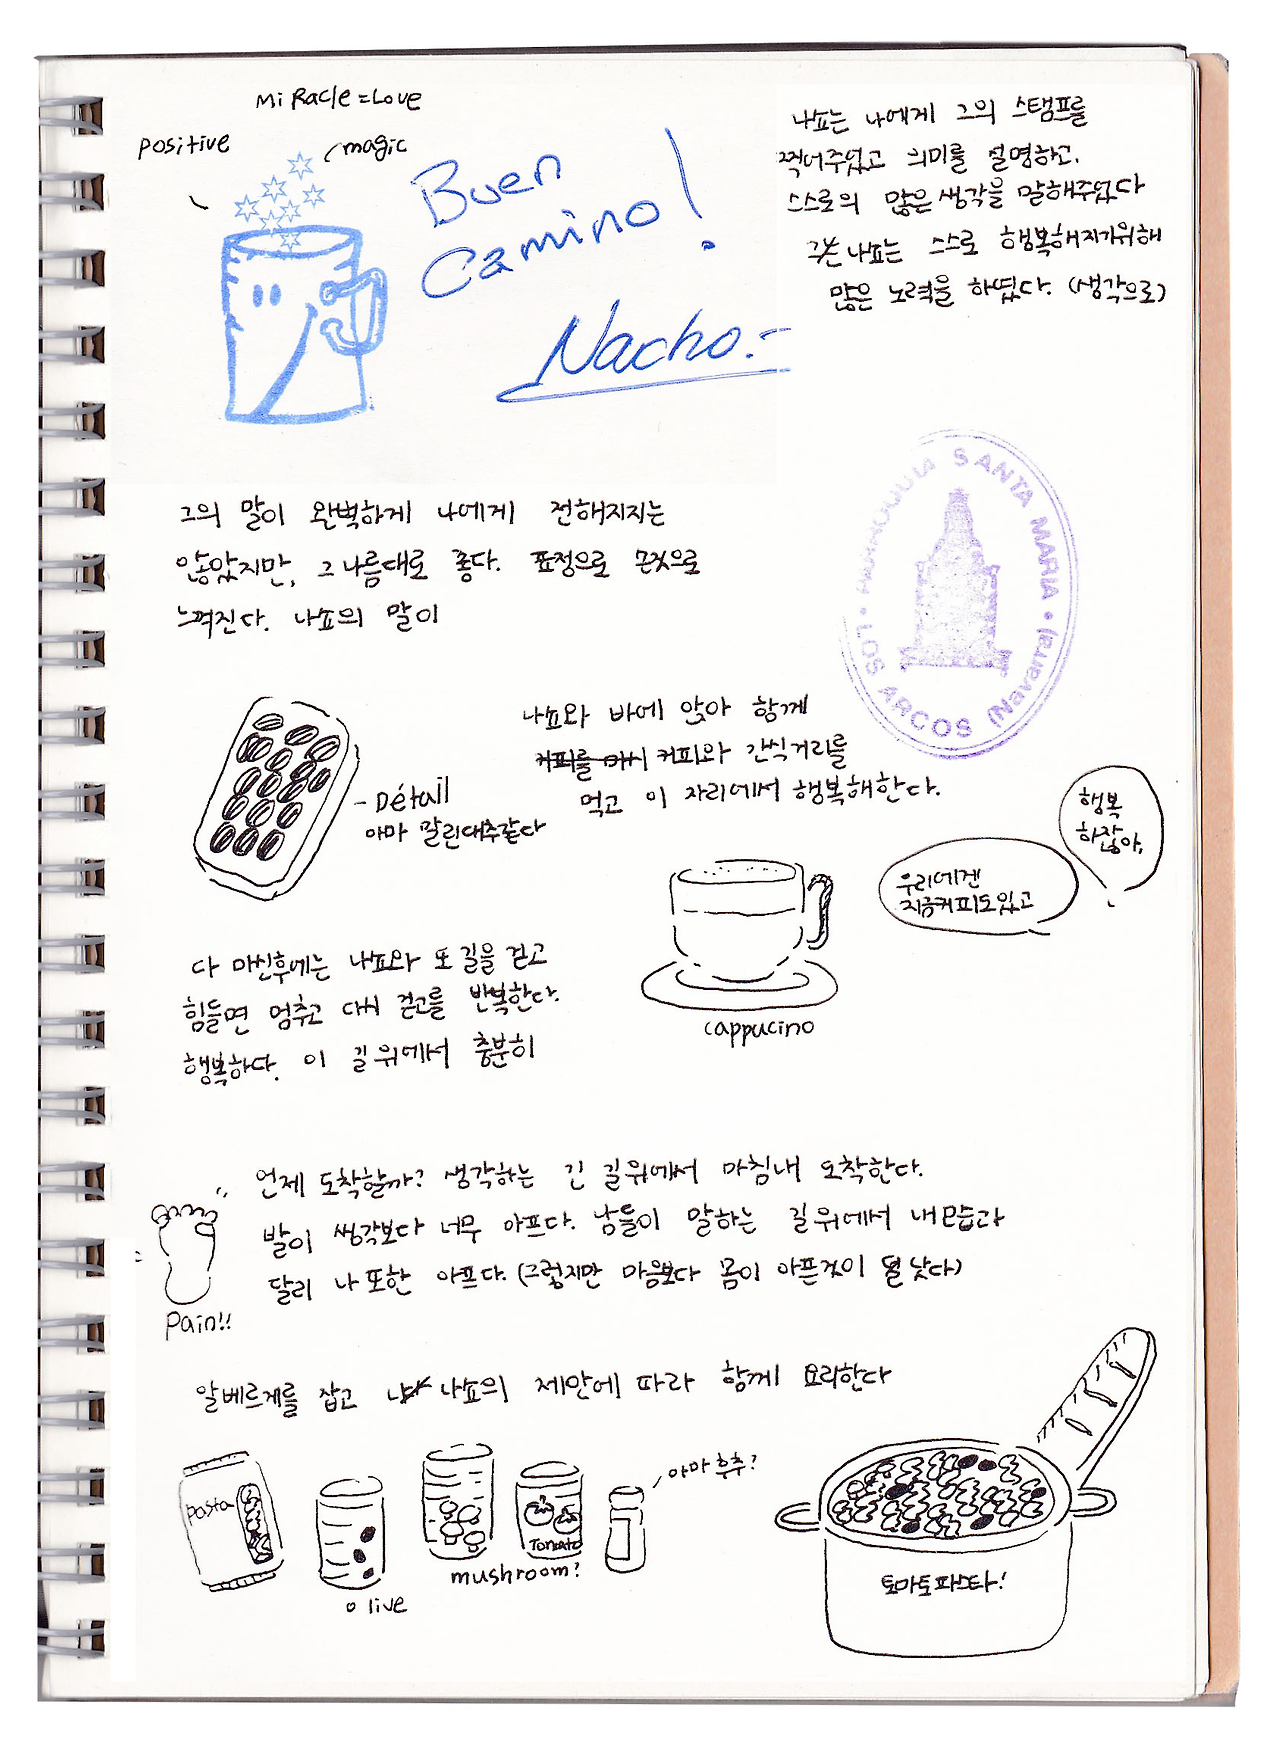 MiRacle = Love
positive
magic
Buen
Camino!
Nacho.-
나쵸는 나에게 그의 스탬프를
찍어주었고 의미를 설명하고,
스스로의 많은 생각을 말해주었다
나쵸는 스스로 행복해지기위해
많은 노력을 하였다. (생각으로)
PARROQUIA SANTA MARIA • LOS ARCOS (Navarra) •
그의 말이 완벽하게 나에게 전해지지는
않았지만, 그 나름대로 좋다. 표정으로 몬짓으로
느껴진다. 나쵸의 말이
나쵸와 바에 앉아 함께
커피를 마시 커피와 간식거리를
먹고 이 자리에서 행복해한다.
- Détail
아마 말린대추같다
행복
하잖아,
우리에겐
지금커피도있고
cappucino
다 마신후에는 나쵸와 또 길을 걷고
힘들면 멈추고 다시 걷고를 반복한다.
행복하다. 이 길위에서 충분히
언제 도착할까? 생각하는 긴 길위에서 마침내 도착한다.
발이 생각보다 너무 아프다. 남들이 말하는 길위에서 내모습과
달리 나 또한 아프다. (그렇지만 마음보다 몸이 아픈것이 덜 낫다)
Pain!!
알베르게를 잡고 나쵸의 제안에 따라 함께 요리한다
pasta
olive
mushroom?
Tomato
아마 후추?
토마토파스타!